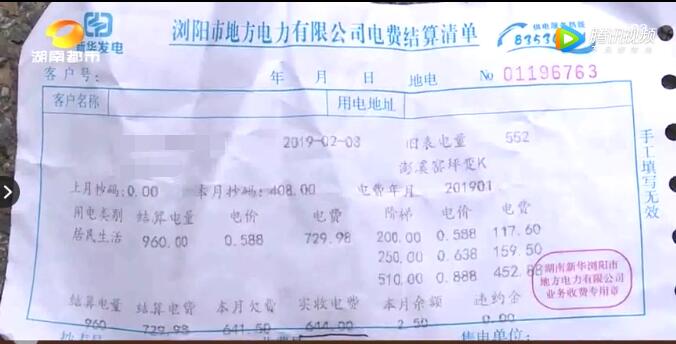 湖南都市
新华发电
浏阳市地方电力有限公司电费结算清单
供电服务热线
8353
腾讯视频
客户号: 年 月 日 地电 No 01196763
客户名称 用电地址
2019-02-03 旧表电量 552
澎溪窑坪变K
上月抄码:0.00 本月抄码:408.00 电费年月 201901
用电类别 结算电量 电价 电费 阶梯 电价 电费
居民生活 960.00 0.588 729.98 200.00 0.588 117.60
250.00 0.638 159.50
510.00 0.888 452.88
结算电量 结算电费 本月欠费 实收电费 本月余额 违约金
960 729.98 641.50 644.00 2.50 0.00
售电单位:
手工填写无效
湖南新华浏阳市
地方电力有限公司
业务收费专用章